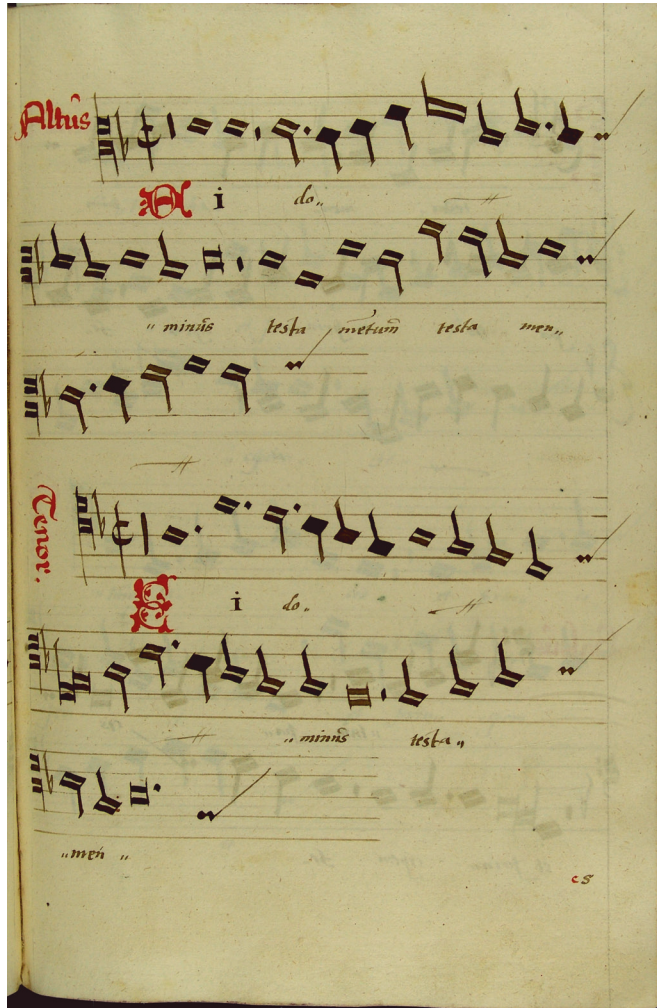 Altũs
Di do„
„ minũs testa mẽtum̃ testa men„
Tenor:
Di do„
„ minũs testa„
„men„